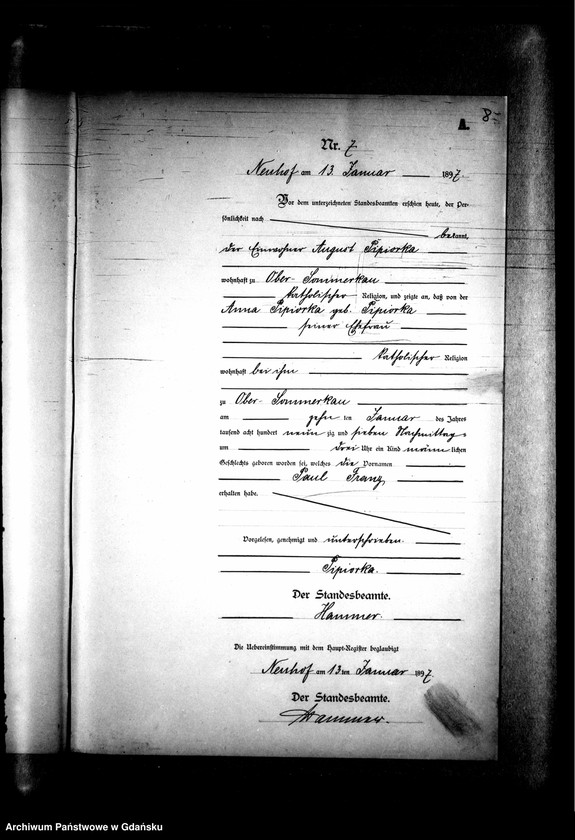 8
A.
Nr. 7
Neuhof am 13. Januar 1897.
Vor dem unterzeichneten Standesbeamten erschien heute, der Per-
sönlichkeit nach
bekannt,
der Einwohner August Pipiorka
wohnhaft zu Ober-Sommerkau
katholischer Religion, und zeigte an, daß von der
Anna Pipiorka geb. Pipiorka
seiner Ehefrau
katholischer Religion
wohnhaft bei ihm
zu Ober-Sommerkau
am zehn ten Januar des Jahres
tausend acht hundert neun zig und sieben Nachmittags
um drei Uhr ein Kind männ lichen
Geschlechts geboren worden sei, welches die Vornamen
Paul Franz
erhalten habe.
Vorgelesen, genehmigt und unterschrieben.
Pipiorka.
Der Standesbeamte.
Hammer.
Die Uebereinstimmung mit dem Haupt-Register beglaubigt
Neuhof am 13 ten Januar 1897.
Der Standesbeamte.
Hammer.
Archiwum Państwowe w Gdańsku